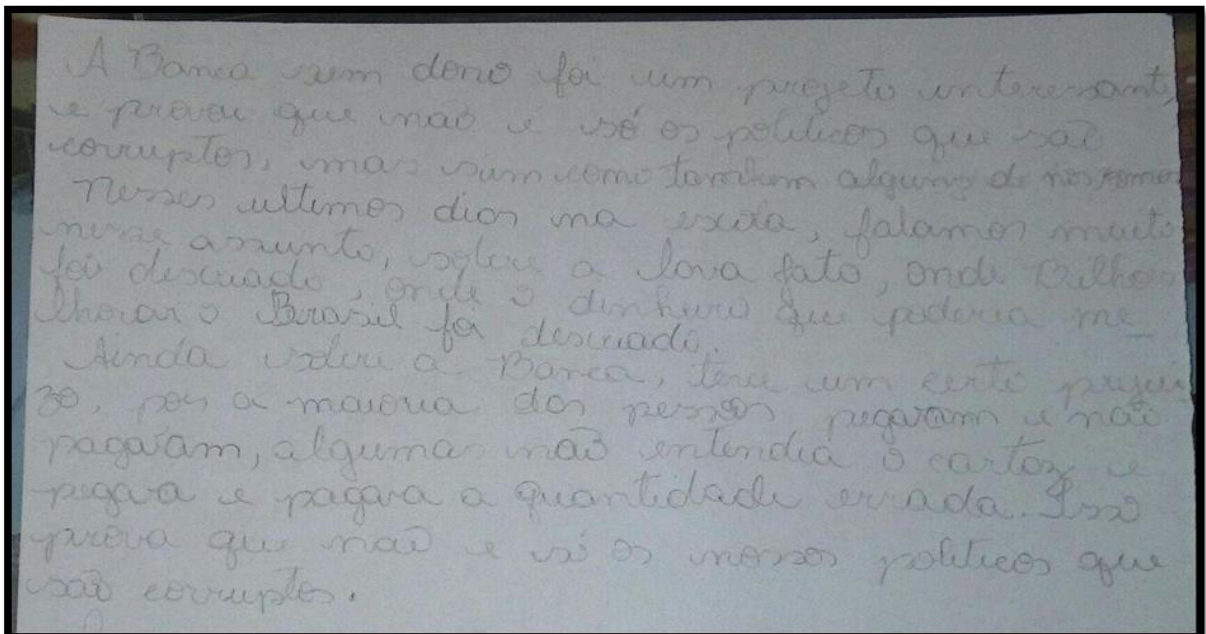 A Banca sem dono foi um projeto interessante,
e provou que não é só os politicos que são
corruptos, mas sim como também alguns de nós somos
Nesses ultimos dias na escola, falamos muito
nesse assunto, sobre a lava fato, onde Bilhões
foi desviado, onde o dinheiro que poderia me_
lhorar o Brasil foi desviado.
Ainda sobre a Banca, teve um certo prejui
zo, pois a maioria das pessoas pegavam e não
pagavam, algumas não entendia o cartaz e
pegava e pagava a quantidade errada. Isso
prova que não e só os nossos politicos que
são corruptos.